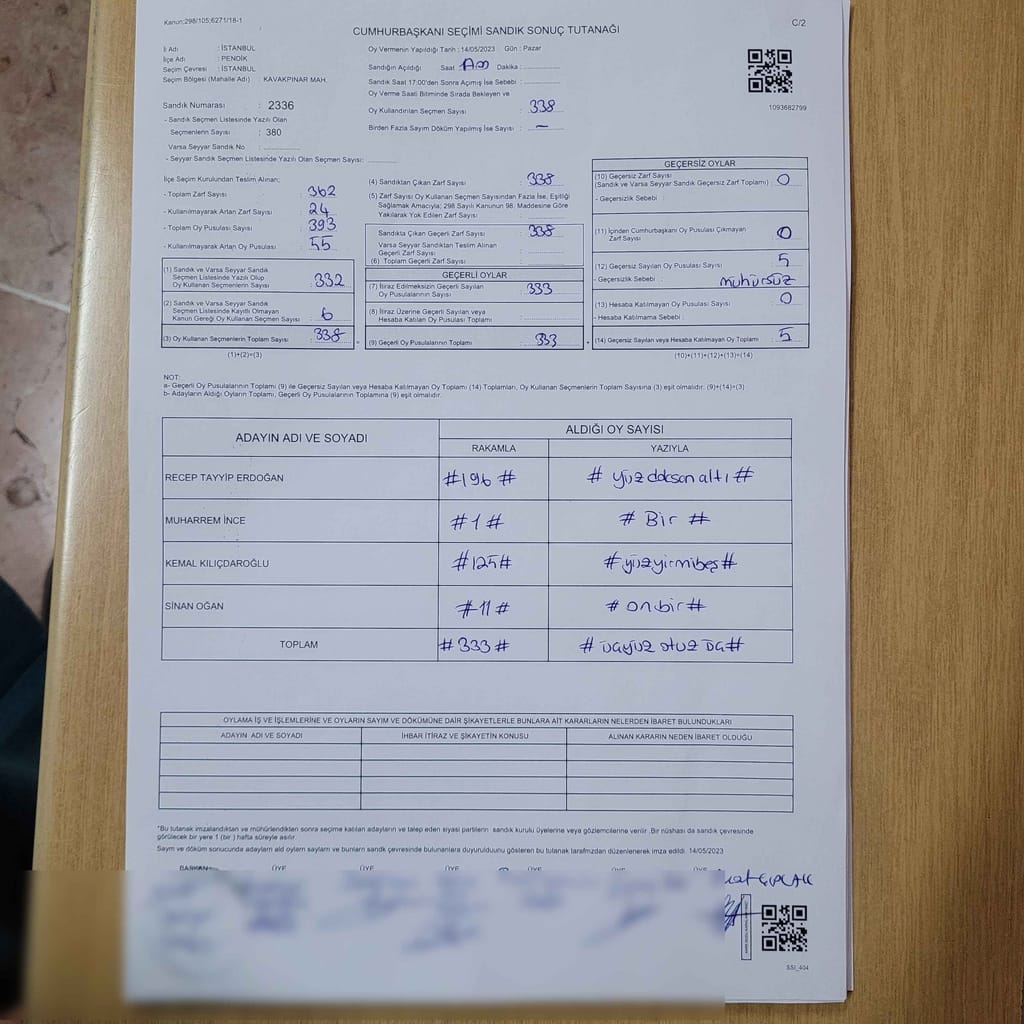 Kanun:298/105;6271/18-1
C/2
CUMHURBAŞKANI SEÇİMİ SANDIK SONUÇ TUTANAĞI
İl Adı : İSTANBUL
İlçe Adı : PENDİK
Seçim Çevresi : İSTANBUL
Seçim Bölgesi (Mahalle Adı) : KAVAKPINAR MAH.
Sandık Numarası : 2336
- Sandık Seçmen Listesinde Yazılı Olan
Seçmenlerin Sayısı : 380
Varsa Seyyar Sandık No :
- Seyyar Sandık Seçmen Listesinde Yazılı Olan Seçmen Sayısı:
Oy Vermenin Yapıldığı Tarih : 14/05/2023 Gün : Pazar
Sandığın Açıldığı Saat Dakika :
Sandık Saat 17:00'den Sonra Açımış İse Sebebi :
Oy Verme Saati Bitiminde Sırada Bekleyen ve
Oy Kullandırılan Seçmen Sayısı : 338
Birden Fazla Sayım Döküm Yapılmış İse Sayısı : –
1093682799
İlçe Seçim Kurulundan Teslim Alınan;
- Toplam Zarf Sayısı : 362
- Kullanılmayarak Artan Zarf Sayısı : 24
- Toplam Oy Pusulası Sayısı : 393
- Kullanılmayarak Artan Oy Pusulası : 55
(1) Sandık ve Varsa Seyyar Sandık
Seçmen Listesinde Yazılı Olup
Oy Kullanan Seçmenlerin Sayısı : 332
(2) Sandık ve Varsa Seyyar Sandık
Seçmen Listesinde Kayıtlı Olmayan
Kanun Gereği Oy Kullanan Seçmen Sayısı : 6
(3) Oy Kullanan Seçmenlerin Toplam Sayısı : 338
(1)+(2)=(3)
(4) Sandıktan Çıkan Zarf Sayısı : 338
(5) Zarf Sayısı Oy Kullanan Seçmen Sayısından Fazla İse, Eşitliği
Sağlamak Amacıyla; 298 Sayılı Kanunun 98. Maddesine Göre
Yakılarak Yok Edilen Zarf Sayısı :
Sandıkta Çıkan Geçerli Zarf Sayısı : 338
Varsa Seyyar Sandıktan Teslim Alınan
Geçerli Zarf Sayısı :
(6) Toplam Geçerli Zarf Sayısı :
GEÇERLİ OYLAR
(7) İtiraz Edilmeksizin Geçerli Sayılan
Oy Pusulalarının Sayısı : 333
(8) İtiraz Üzerine Geçerli Sayılan veya
Hesaba Katılan Oy Pusulası Toplamı :
(9) Geçerli Oy Pusulalarının Toplamı : 333
GEÇERSİZ OYLAR
(10) Geçersiz Zarf Sayısı
(Sandık ve Varsa Seyyar Sandık Geçersiz Zarf Toplamı) : 0
- Geçersizlik Sebebi :
(11) İçinden Cumhurbaşkanı Oy Pusulası Çıkmayan
Zarf Sayısı : 0
(12) Geçersiz Sayılan Oy Pusulası Sayısı : 5
- Geçersizlik Sebebi : mühürsüz
(13) Hesaba Katılmayan Oy Pusulası Sayısı : 0
- Hesaba Katılmama Sebebi :
(14) Geçersiz Sayılan veya Hesaba Katılmayan Oy Toplamı : 5
(10)+(11)+(12)+(13)=(14)
NOT:
a- Geçerli Oy Pusulalarının Toplamı (9) ile Geçersiz Sayılan veya Hesaba Katılmayan Oy Toplamı (14) Toplamları, Oy Kullanan Seçmenlerin Toplam Sayısına (3) eşit olmalıdır. (9)+(14)=(3)
b- Adayların Aldığı Oyların Toplamı, Geçerli Oy Pusulalarının Toplamına (9) eşit olmalıdır.
ADAYIN ADI VE SOYADI
ALDIĞI OY SAYISI
RAKAMLA YAZIYLA
RECEP TAYYİP ERDOĞAN #196# # yüz doksan altı #
MUHARREM İNCE #1# # Bir #
KEMAL KILIÇDAROĞLU #125# #yüzyirmibeş#
SİNAN OĞAN #11# # onbir#
TOPLAM #333# # üçyüz otuz üç#
OYLAMA İŞ VE İŞLEMLERİNE VE OYLARIN SAYIM VE DÖKÜMÜNE DAİR ŞİKAYETLERLE BUNLARA AİT KARARLARIN NELERDEN İBARET BULUNDUKLARI
ADAYIN ADI VE SOYADI İHBAR İTİRAZ VE ŞİKAYETİN KONUSU ALINAN KARARIN NEDEN İBARET OLDUĞU
"Bu tutanak imzalandıktan ve mühürlendikten sonra seçime katılan adayların ve talep eden siyasi partilerin sandık kurulu üyelerine veya gözlemcilerine verilir .Bir nüshası da sandık çevresinde
görülecek bir yere 1 (bir ) hafta süreyle asılır.
Sayım ve döküm sonucunda adayların aldığı oyların sayıların ve bunların sandık çevresinde bulunanlara duyurulduğunu gösteren bu tutanak tarafımızdan düzenlenerek imza edildi. 14/05/2023
BAŞKAN ÜYE ÜYE ÜYE ÜYE ÜYE ÜYE
SSİ_404